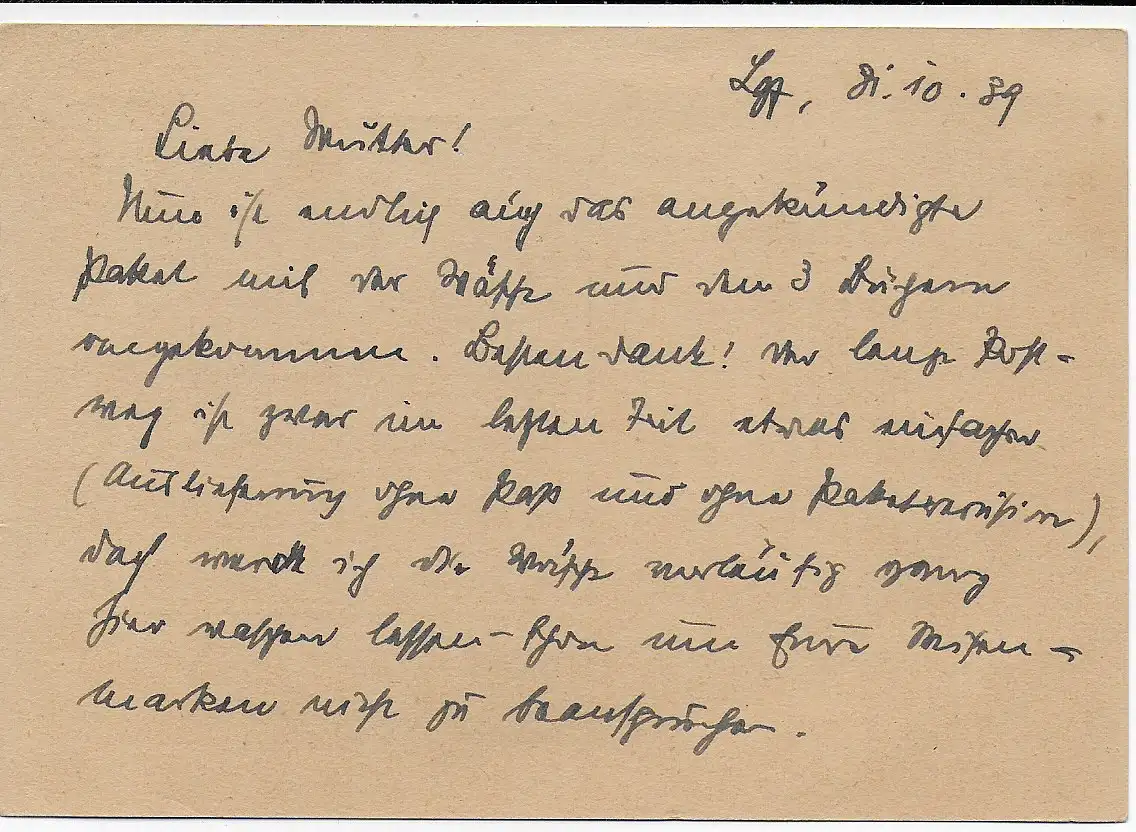 31.10.39
Liebe Mutter!
Nun ist endlich auch das angekündigte
Paket mit der Wäsche und den 3 Büchern
angekommen. Besten Dank! Der lange Post-
weg ist zwar in letzten Zeit etwas einfacher
(Auslieferung ohne Pass und ohne),
doch werde ich die Wäsche vorläufig ganz
hier waschen lassen - schon um Eure Seifen-
marken nicht zu beanspruchen.